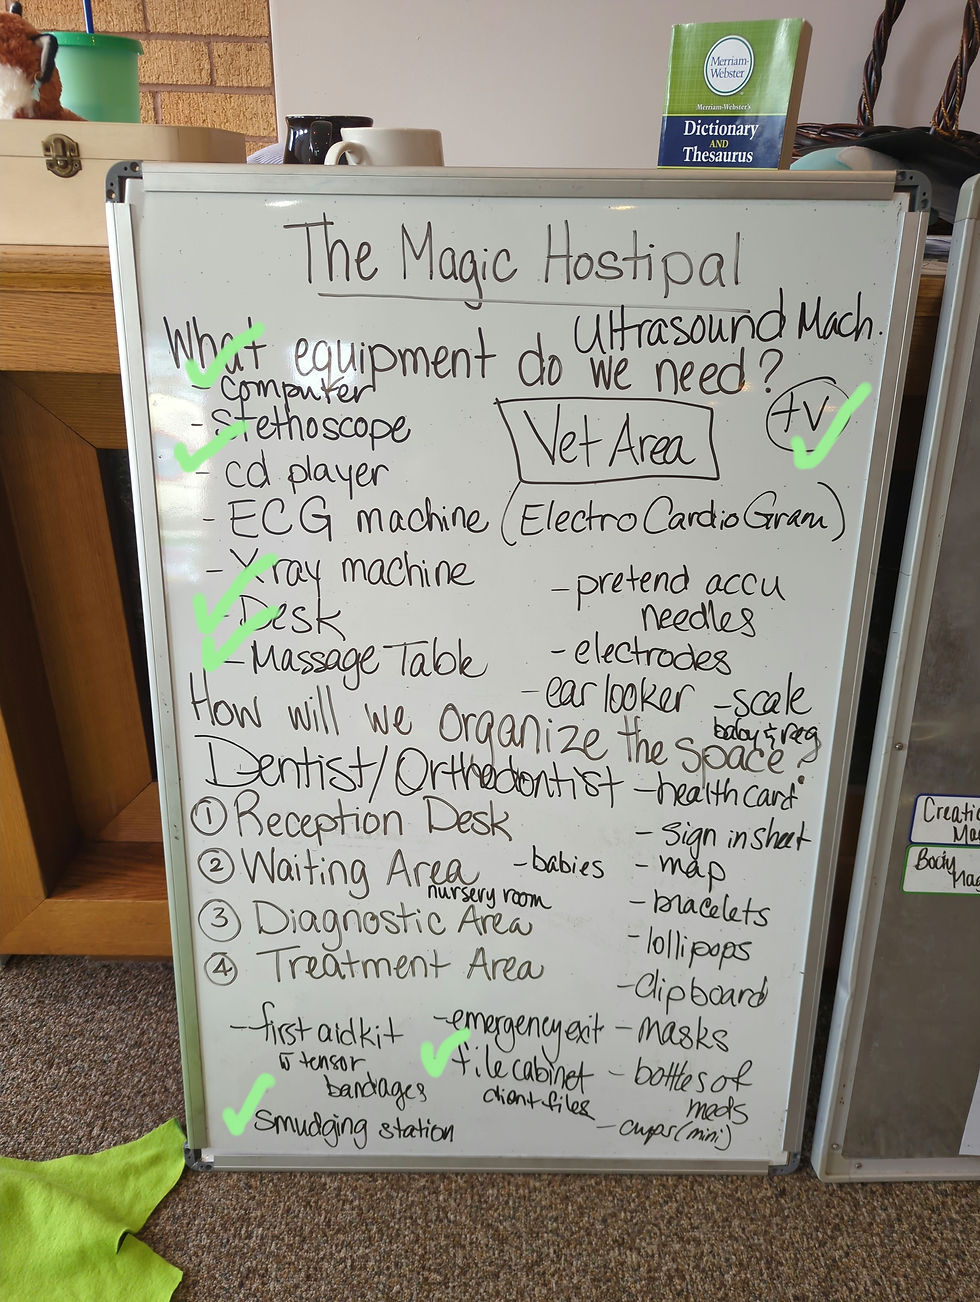 Merriam-
Webster
Merriam-Webster's
Dictionary
AND
Thesaurus
The Magic Hostipal
Ultrasound Mach.
What equipment do we need?
- computer
- Stethoscope
- cd player
tv
Vet Area
- ECG machine (ElectroCardioGram)
- Xray machine
- Desk
- Massage Table
- pretend accu
needles
- electrodes
- ear looker
- scale
baby & reg
How will we organize the space?
Dentist/Orthedontist
① Reception Desk
② Waiting Area
- babies
nursery room
③ Diagnostic Area
④ Treatment Area
- health card
- sign in sheet
- map
- bracelets
- lollipops
- clipboard
- masks
- bottles of
meds
- cups (mini)
- first aid kit
tensor
bandages
- emergency exit
file cabinet
client files
smudging station
Creatio
Body